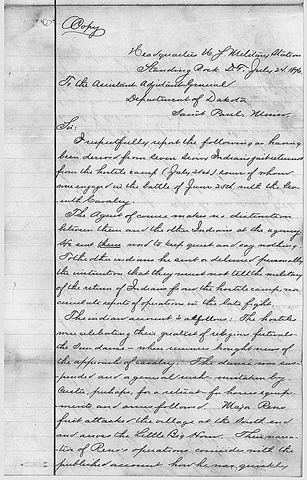 (Copy)
Headquarters U.S. Military Station
Standing Rock, D.T. July 24 1876
To the Assistant Adjutant General
Department of Dakota
Saint Paul Minn.
Sir:
I respectfully report the following as having
been derived from seven Sioux Indians just returned
from the hostile camp (July 21st) some of whom
were engaged in the battle of June 25th with the Sev-
enth Cavalry.
The Agent of course makes no distinction
between them and the other Indians at the agency.
He sent them word to keep quiet and say nothing.
To the other indians he sent or delivered personally
the instruction that they must not tell the military
of the return of Indians from the hostile camp, nor
circulate report of operations in the late fight.
The indian account is as follows: The hostiles
were celebrating their greatest of religious festivals
the Sun dance - when runners brought news of
the approach of cavalry. The dance was sus-
pended and a general rush - mistaken by
Custer, perhaps, for a retreat - for horses equip-
ments and arms followed. Major Reno
first attacked the village at the south end
and across the Little Big Horn. Their narra-
tive of Reno's operations coincides with the
published account how he was quickly